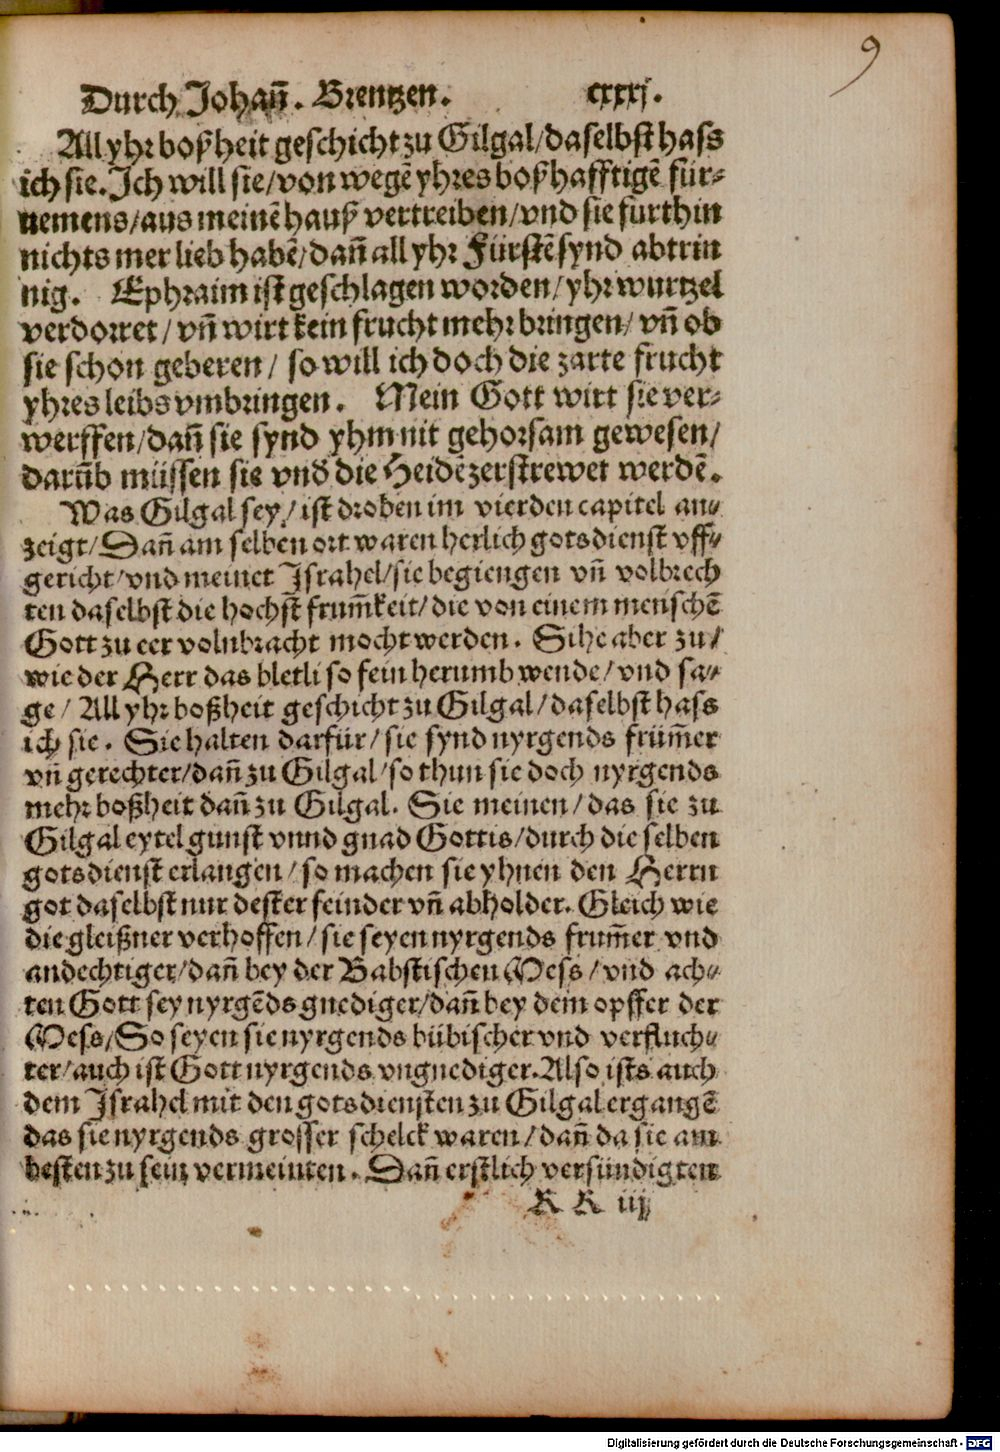 9
Durch Johañ. Brentzen. cxxxj.
All yhr boßheit geschicht zu Gilgal/daselbst hass
ich sie. Ich will sie/von wegē yhres boßhafftigē für-
nemens/aus meinē hauß vertreiben/vnd sie furthin
nichts mer lieb habē/dañ all yhr Fürstē synd abtrin
nig. Ephraim ist geschlagen worden/yhr wurtzel
verdorret/vñ wirt kein frucht mehr bringen/vñ ob
sie schon geberen/so will ich doch die zarte frucht
yhres leibs vmbringen. Mein Gott wirt sie ver-
werffen/dañ sie synd yhm nit gehorsam gewesen/
darūb müssen sie vnd̄ die Heidē zerstrewet werdē.
Was Gilgal sey/ist droben im vierden capitel an-
zeigt/Dañ am selben ort waren herlich gotsdienst vff-
gericht/vnd meinet Israhel/sie begiengen vñ volbrech
ten daselbst die hochst frum̄keit/die von einem menschē
Gott zu eer volnbracht mocht werden. Sihe aber zu/
wie der Herr das bletli so fein herumb wende/vnd sa-
ge/All yhr boßheit geschicht zu Gilgal/daselbst hass
ich sie. Sie halten darfür/sie synd nyrgends früm̄er
vñ gerechter/dañ zu Gilgal/so thun sie doch nyrgends
mehr boßheit dañ zu Gilgal. Sie meinen/das sie zu
Gilgal eytel gunst vnnd gnad Gottis/durch die selben
gotsdienst erlangen/so machen sie yhnen den Herrn
got daselbst nur dester feinder vñ abholder. Gleich wie
die gleißner verhoffen/sie seyen nyrgends frum̄er vnd
andechtiger/dañ bey der Babstischen Mess/vnd ach-
ten Gott sey nyrgēds gnediger/dañ bey dem opffer der
Mess/So seyen sie nyrgends bübischer vnd verfluch-
ter/auch ist Gott nyrgends vngnediger. Also ists auch
dem Israhel mit den gotsdiensten zu Gilgal ergangē
das sie nyrgends grosser schelck waren/dañ da sie am
besten zu sein vermeinten. Dañ erstlich versündigten
R R iij
Digitalisierung gefördert durch die Deutsche Forschungsgemeinschaft - DFG